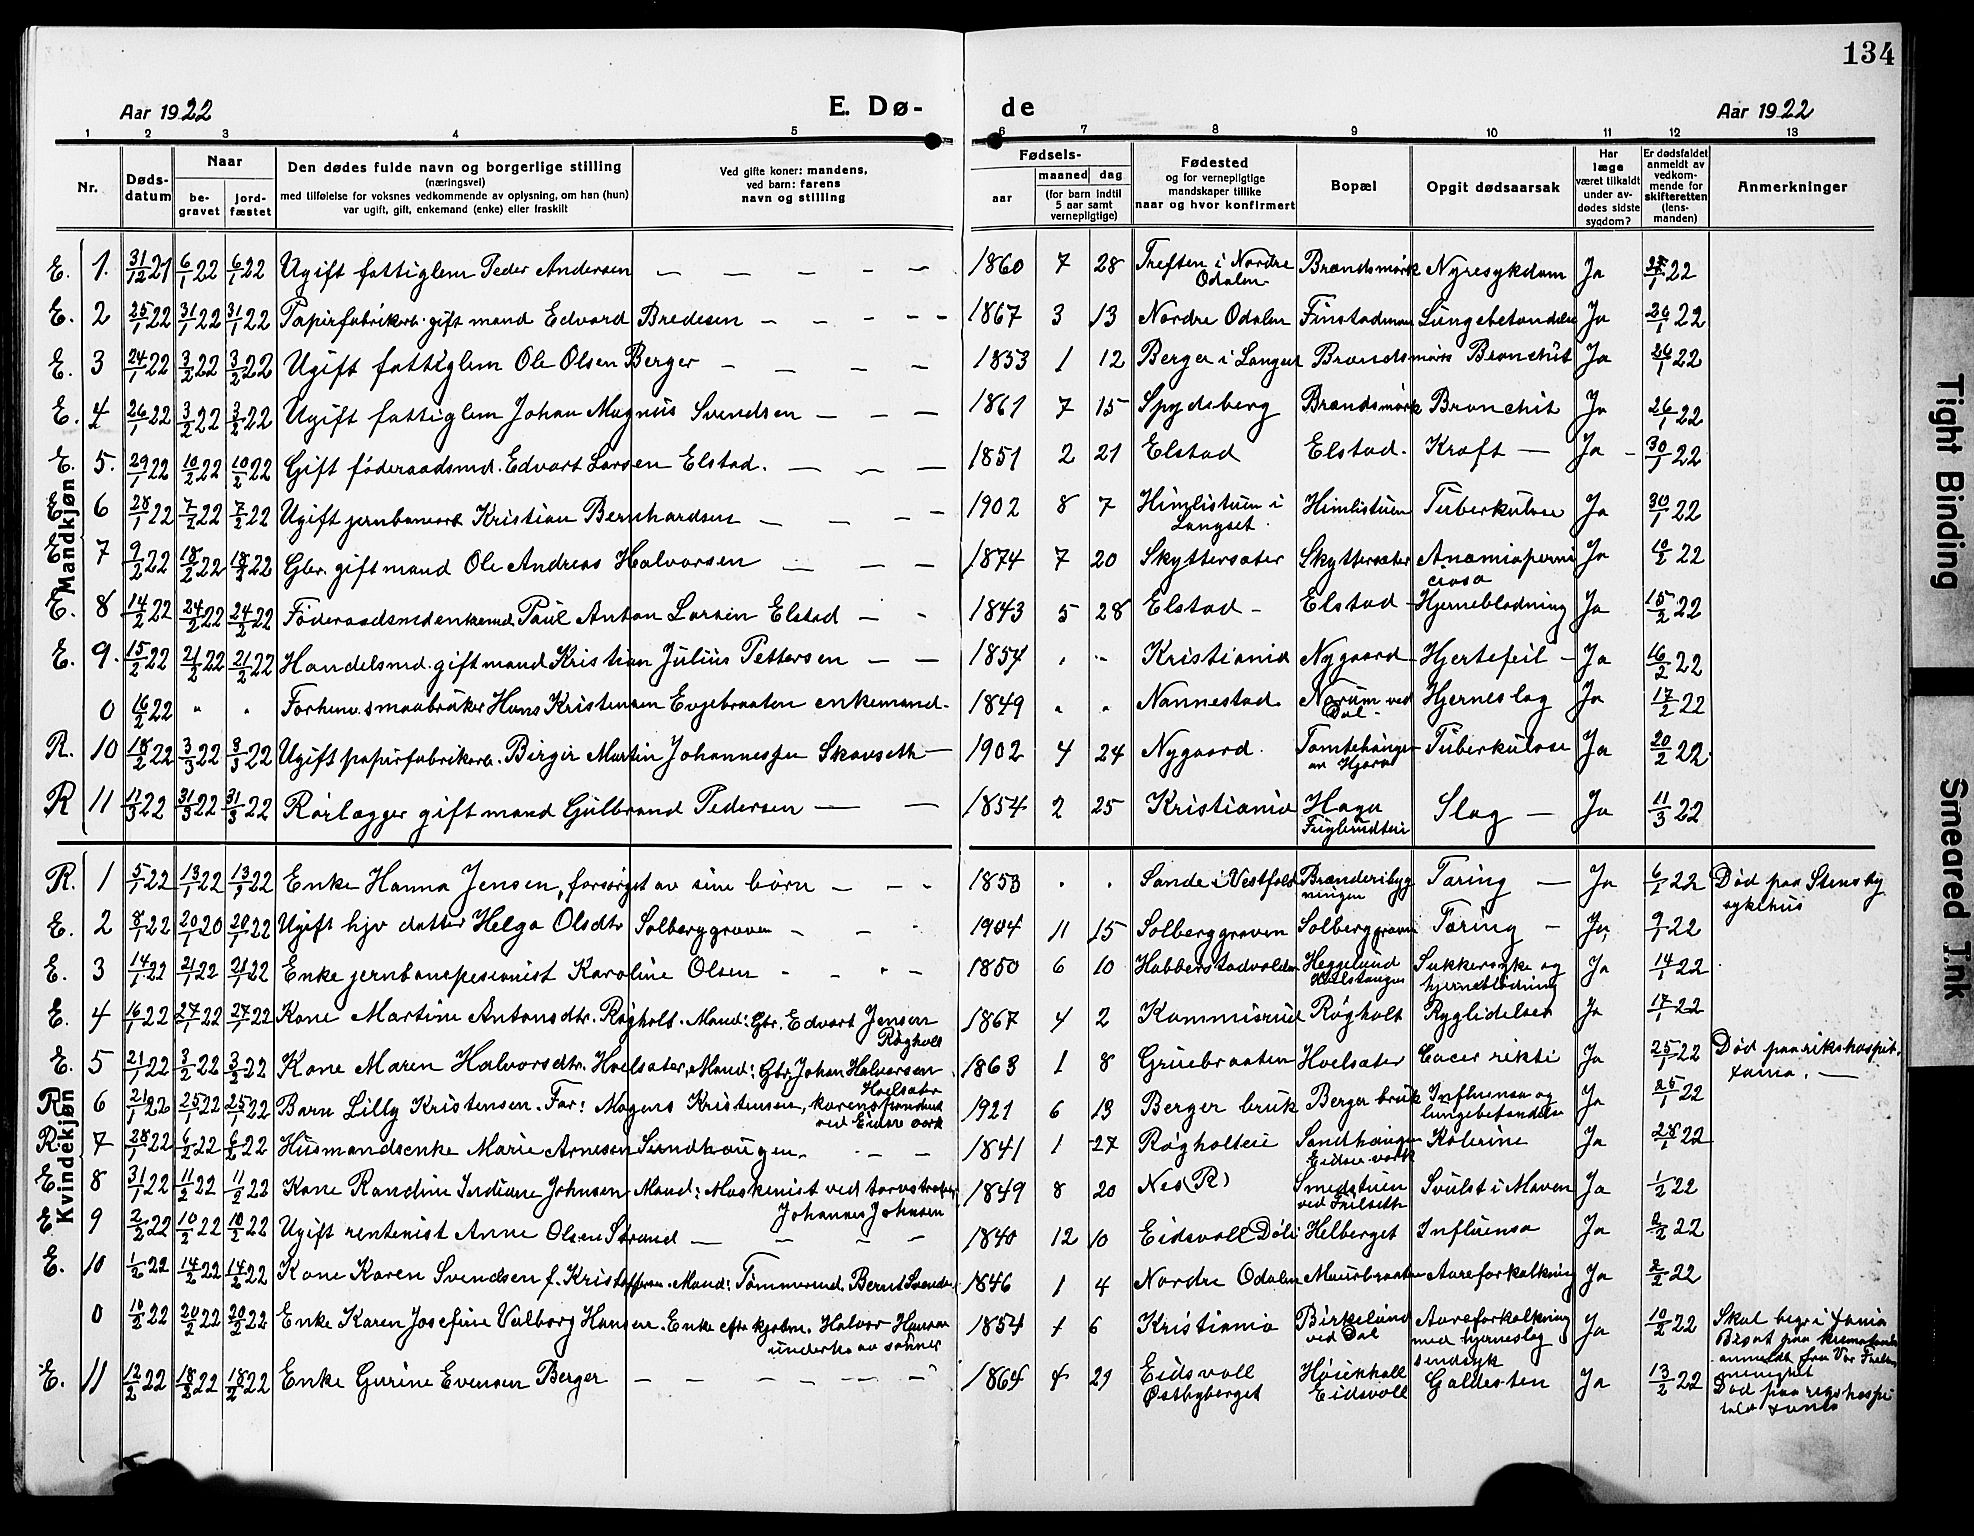 134
Aar 1922
E. Dø-
de
Aar 1922
1 2 3 4 5 6 7 8 9 10 11 12 13
Nr.
Døds-
datum
Naar
be-
gravet
jord-
fæstet
Den dødes fulde navn og borgerlige stilling
(næringsvei)
med tilføielse for voksnes vedkommende av oplysning, om han (hun)
var ugift, gift, enkemand (enke) eller fraskilt
Ved gifte koner: mandens,
ved barn: farens
navn og stilling
Fødsels-
aar
maaned
dag
(for barn indtil
5 aar samt
vernepligtige)
Fødested
og for vernepligtige
mandskaper tillike
naar og hvor konfirmert
Bopæl
Opgit dødsaarsak
Har
læge
været tilkaldt
under av-
dødes sidste
sygdom?
Er dødsfaldet
anmeldt av
vedkom-
mende for
skifteretten
(lens-
manden)
Anmerkninger
Mandkjøn
E. 1. 31/12 21 6/1 22 6/1 22 Ugift fattiglem Peder Andersen — — — — — 1860 7 28 Treften i Nordre Odalen Brandsmørk Nyresykdom Ja 22
E. 2 25/1 22 31/1 22 31/1 22 Papirfabrikarb. gift mand Edvard Bredesen — — — — 1867 3 13 Nordre Odalen Lungebetændelse Ja 26/1 22
E. 3 24/1 22 3/2 22 3/2 22 Ugift fattiglem Ole Olsen Berger — — — — 1833 1 12 Berger i Langset Brandsmørk Bronchit Ja 26/1 22
E. 4 26/1 22 3/2 22 3/2 22 Ugift fattiglem Johan Magnus Svendsen — — — 1861 7 15 Spydeberg Brandsmørk Bronchit Ja 26/1 22
E. 5. 29/1 22 10/2 22 10/2 22 Gift föderaadsmd. Edvart Larsen Elstad. — — — 1851 2 21 Elstad Elstad. Kræft — Ja - 30/1 22
E 6 28/1 22 7/2 22 7/2 22 Ugift jernbanearb Kristian Bernhardsen — — — 1902 8 7 Himlistuen i Langset. Himlistuen Tuberkulose Ja 30/1 22
E 7 9/2 22 18/2 22 18/2 22 Gbr. gift mand Ole Andreas Halvorsen — — — 1874 7 20 Skyttersæter Skyttersæter Anæmia perni ciosa Ja 10/2 22
E. 8 14/2 22 24/2 22 24/2 22 Föderaadsmd enkemd. Paul Anton Larsen Elstad — - 1843 5 28 Elstad - Elstad - Hjerneblødning Ja 15/2 22
E. 9. 15/2 22 21/2 22 21/2 22 Handelsmd. gift mand Kristian Julius Pettersen — — 1854 . .. Kristiania Nygaard Hjertefeil - Ja 16/2 22
0 16/2 22 " " Forhenv. smaabruker Hans Kristensen Evjebraaten enkemand. 1849 " " Nannestad. Norum ved Dal - Hjerneslag Ja 17/2 22
R. 10 18/2 22 3/3 22 3/3 22 Ugift papirfabrikarb. Birger Martin Johannessen Skauseth — 1902 4 24 Nygaard. Tuberkulose Ja 20/2 22
R 11 11/3 22 31/3 22 31/3 22 Rørlægger gift mand Gulbrand Pedersen — — 1854 2 25 Kristiania Haga Slag — Ja 11/3 22
Kvindekjøn
R. 1 5/1 22 13/1 22 13/1 22 Enke Hanna Jensen, forsørget av sine børn — - - 1853 . . Sande i Vestfold Brænderibyg ningen Tæring — Ja 6/1 22 Død paa Stensby sykehus
E. 2 8/1 22 20/1 20 20/1 22 Ugift hjv datter Helga Olsdtr Solberggraven — - . 1904 11 15 Solberggraven Solberggraven Tæring — Ja, 9/1 22
E. 3 14/1 22 21/1 22 21/1 22 Enke jernbanepesionist Karoline Olsen — - - - 1850 6 10 Habberstadvolden Heggelund Sukkersyke og hjerneblødning Ja 14/1 22
E. 4 16/1 22 27/1 22 27/1 22 Kone Martine Antonsdtr. Røgholt. Mand: Gbr. Edvart Jensen Røgholt 1867 4 2 Kammisrud Røgholt Ryglidelser Ja 17/1 22
E. 5 21/1 22 3/2 22 3/2 22 Kone Maren Halvorsdtr. Hvelsæter, Mand: Gbr. Johan Halvorsen Hvelsæter 1863 1 8 Gruebraaten Hvelsæter Ja 25/1 22 Død paa rikshospit. xania. —
R 6 21/1 22 25/1 22 25/1 22 Barn Lilly Kristensen. Far: Mogens Kristensen, ved Eidsv værk 1921 6 13 Berger bruk Berger bruk Influensa og lungebetændelse Ja 25/1 22
R 7 28/1 22 6/2 22 6/2 22 Husmandsenke Marie Arnesen Sandhaugen. - - - 1841 1 27 Røgholteie Sandhaugen Eidsv. værk Kolerine Ja 28/1 22
E. 8 31/1 22 11/2 22 11/2 22 Kone Randine Indiane Johnsen Mand: Maskenist ved Johannes Johnsen 1849 8 20 Nes (R) Smedstuen Svulst i Maven Ja 1/2 22
E 9 2/2 22 10/2 22 10/2 22 Ugift rentenist Anne Olsen Strand — - - - 1840 12 10 Eidsvoll Døli Helberget Influensa Ja 2/2 22
E. 10 1/2 22 14/2 22 14/2 22 Kone Karen Svendsen f. Kristoffersen. Mand: Tømmermd. Bernt Svendsen 1846 1 4 Nordre Odalen Aareforkalkning Ja 2/2 22
0 10/2 22 20/2 22 20/2 22 Enke Karen Josefine Valborg Hansen. Enke efter kjøbm. Halvor Hansen underh. av sønner 1854 1 6 Kristiania Birkelund ved Dal Aareforkalkning med hjerneslag sindsyk Ja 10/2 22 Skal begr i xania anmeldt fra Vor Frelsers menighet
E. 11 12/2 22 18/2 22 18/2 22 Enke Gurine Evensen Berger — — — — — 1864 4 29 Eidsvoll Østbyberget Eidsvoll Galdesten Ja 13/2 22 Død paa rigshospi talet xania
Tight Binding
Smeared Ink